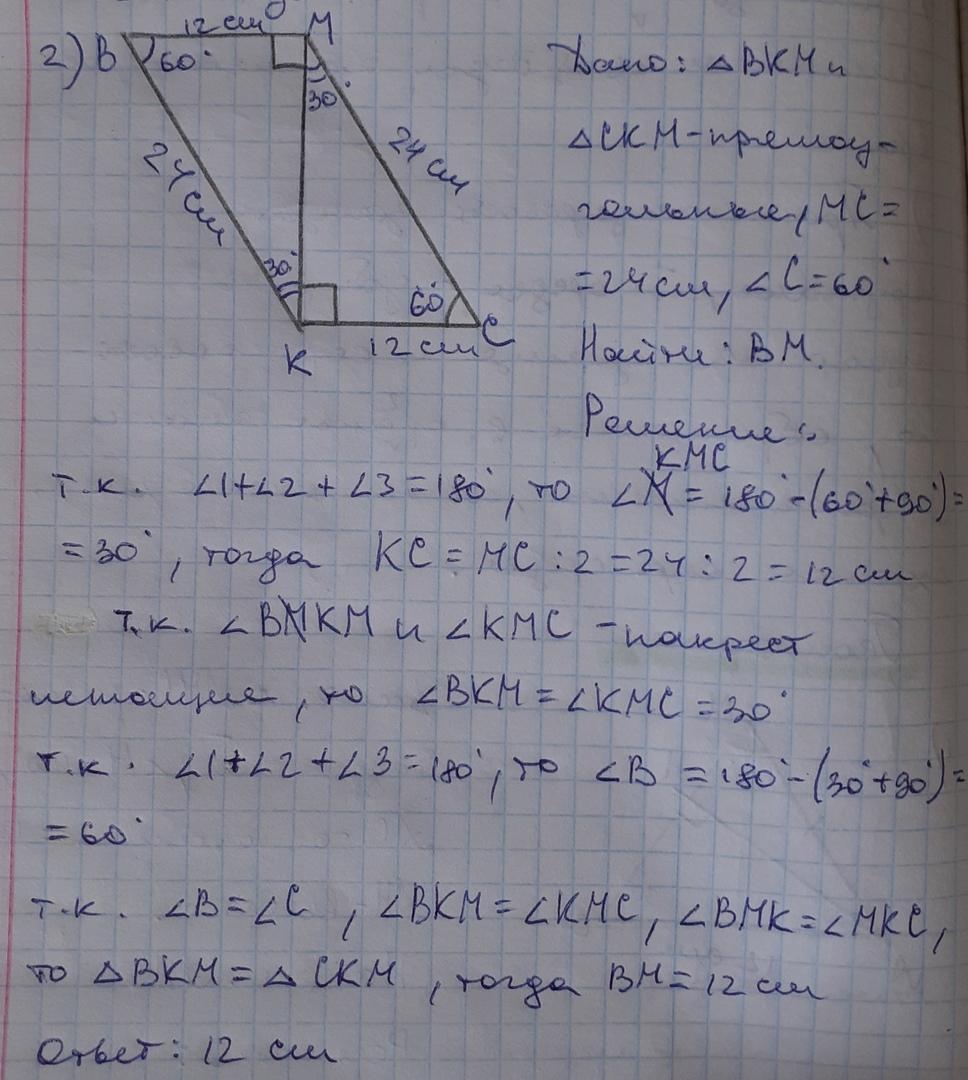 2) B 12 см M
60°
30°
24 см
24 см
30°
60°
K 12 см C
Дано: △BKM и
△CKM-прямоу-
гольные, MC=
=24см, ∠C=60°
Найти: BM.
Решение:
KMC
т.к. ∠1+∠2+∠3=180°, то ∠M=180°-(60°+90°)=
=30°, тогда KC=MC:2=24:2=12см
т.к. ∠BMKM и ∠KMC -накрест
лежащие, то ∠BKM=∠KMC=30°
т.к. ∠1+∠2+∠3=180°, то ∠B =180°-(30°+90°)=
=60°
т.к. ∠B=∠C, ∠BKM=∠KMC, ∠BMK=∠MKC,
то △BKM=△CKM, тогда BM=12см
Ответ: 12 см